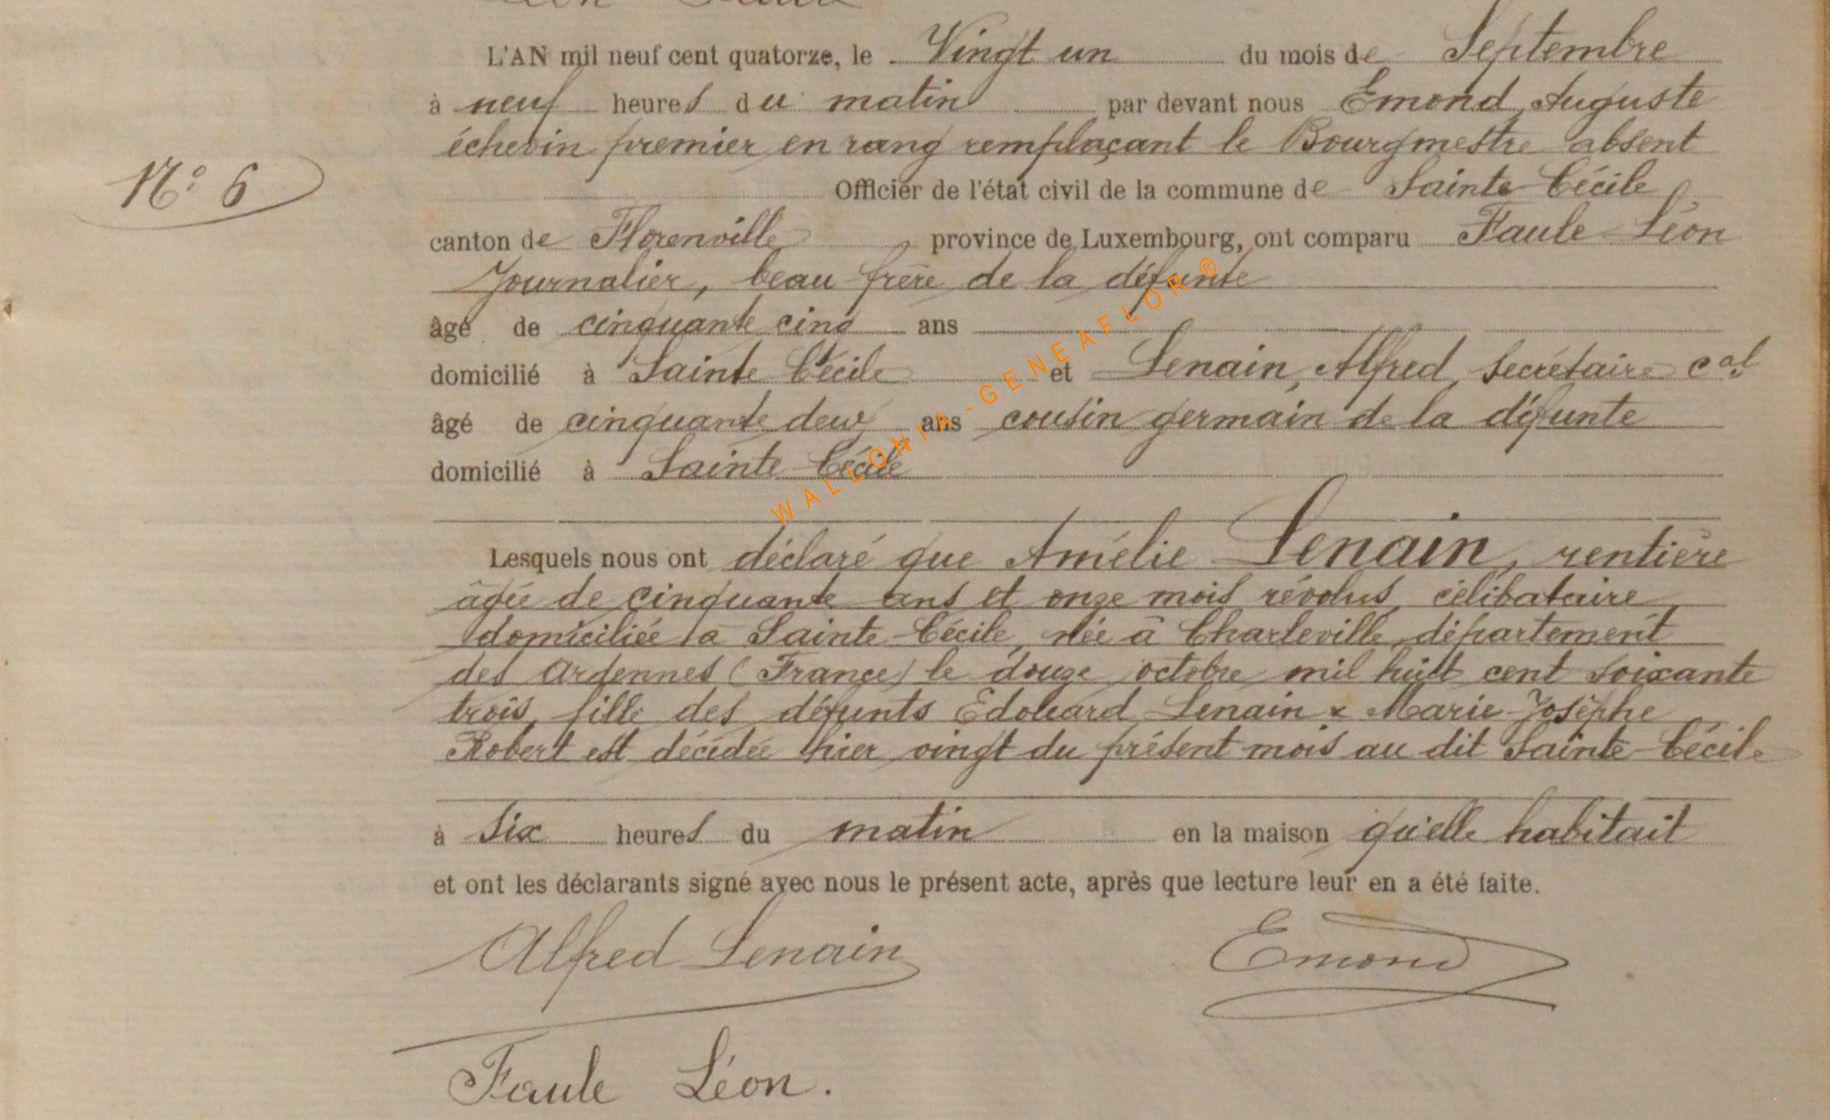 L'AN mil neuf cent quatorze, le Vingt un du mois de Septembre
à neuf heures du matin par devant nous Emond, Auguste
échevin premier en rang remplaçant le Bourgmestre absent
N° 6
Officier de l'état civil de la commune de Sainte Cécile
canton de Florenville, province de Luxembourg, ont comparu Faule Léon
Journalier, beau frère de la défunte
âgé de cinquante cinq ans
domicilié à Sainte Cécile et Lenain, Alfred, secrétaire cal
âgé de cinquante deux ans cousin germain de la défunte
domicilié à Sainte Cécile
WALLONIA-GENEAFLOR ®
Lesquels nous ont déclaré que Amélie Lenain, rentière
âgée de cinquante ans et onze mois révolus, célibataire
domiciliée à Sainte Cécile, née à Charleville, département
des Ardennes (France) le douze octobre mil huit cent soixante
trois, fille des défunts Edouard Lenain & Marie-Josèphe
Robert est décédée hier vingt du présent mois au dit Sainte-Cécile
à six heures du matin en la maison qu'elle habitait
et ont les déclarants signé avec nous le présent acte, après que lecture leur en a été faite.
Alfred Lenain Emond
Faule Léon.